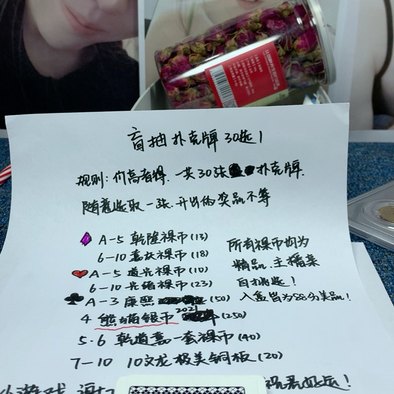 盲抽扑克牌 30选1
规则：价高者得，一共30张扑克牌，
随意选取一张，开出的奖品不等
A-5 乾隆裸币 (13) 所有裸币均为
6-10 嘉庆裸币 (18) 精品，主播亲
A-5 道光裸币 (10) 自挑选！
6-10 光绪裸币 (23) 入盒皆为85分美品！
A-3 康熙 (50)
4 熊猫银币 2021 (250)
5.6 乾道嘉一套裸币 (40)
7-10 10文龙极美铜板 (20)
小游戏